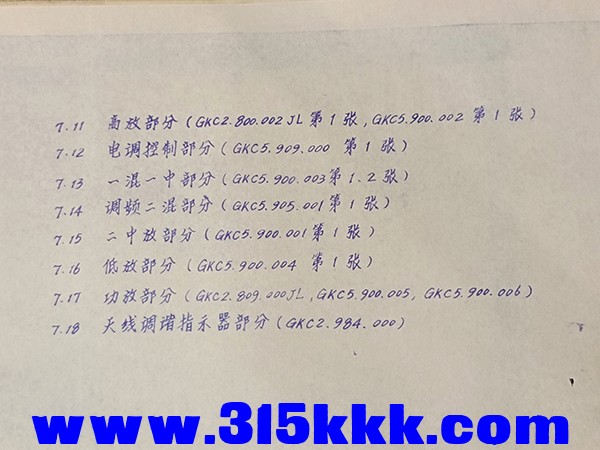 7.11 高放部分(GKC2.800.002JL第1张,GKC5.900.002第1张)
7.12 电调控制部分(GKC5.909.000 第1张)
7.13 一混一中部分(GKC5.900.003第1.2张)
7.14 调频二混部分(GKC5.905.001第1张)
7.15 二中放部分(GKC5.900.001第1张)
7.16 低放部分(GKC5.900.004 第1张)
7.17 功放部分(GKC2.809.000JL,GKC5.900.005,GKC5.900.006)
7.18 天线调谐指示器部分(GKC2.984.000)
www.315kkk.com